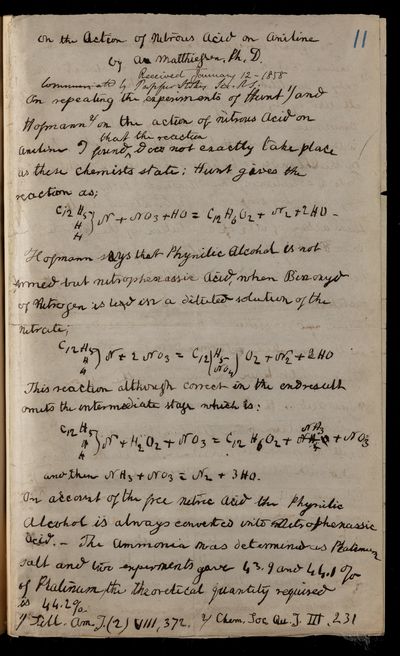 11
On the Action of Nitrous Acid on Aniline
by A Matthiessen, Ph. D.
Received January 12 - 1858
Communicated by Professor Stokes Sec. R.S.
On repeating the experiments of Hunt 1) and
Hofmann 2) on the action of nitrous Acid on
that the reaction
Aniline I found, does not exactly take place
as these chemists state; Hunt gives the
reaction as;
C12 H5 H H } N + NO3 + HO = C12 H6 O2 + N2 + 2HO -
Hofmann says that Phynilic Alcohol is not
formed but nitrophenassic Acid, when Binoxyd
of Nitrogen is led in a diluted solution of the
nitrate;
C12 H5 H H } N + 2 NO3 = C12 { H5 NO4 } O2 + N2 + 2HO
This reaction although correct in the endresult
omits the intermediate stage which is;
NH3
C12 H5 H H } N + H2 O2 + NO3 = C12 H6 O2 + + NO3
and then NH3 + NO3 = N2 + 3HO.
On account of the free nitric Acid the Phynilic
Alcohol is always converted into Nitrophenassic
Acid. - The Ammonia was determined as Platinum
salt and two experiments gave 43.9 and 44.1 %
of Platinum, the theoretical quantity required
is 44.2%
1) Sill. Am. J. (2) VIII, 372. 2) Chem. Soc. Qu. J. III, 231